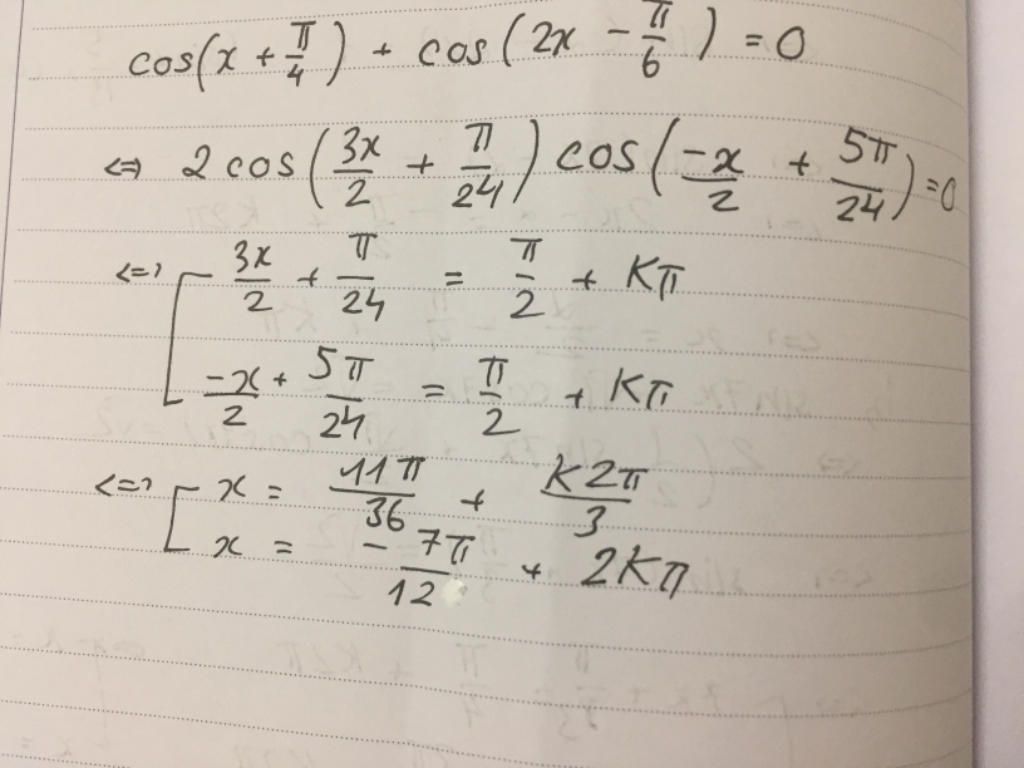 cos(x + π/4) + cos(2x - π/6) = 0
<=> 2 cos(3x/2 + π/24) cos(-x/2 + 5π/24) = 0
<=> [ 3x/2 + π/24 = π/2 + Kπ
-x/2 + 5π/24 = π/2 + Kπ
<=> [ x = 11π/36 + K2π/3
x = -7π/12 + 2Kπ